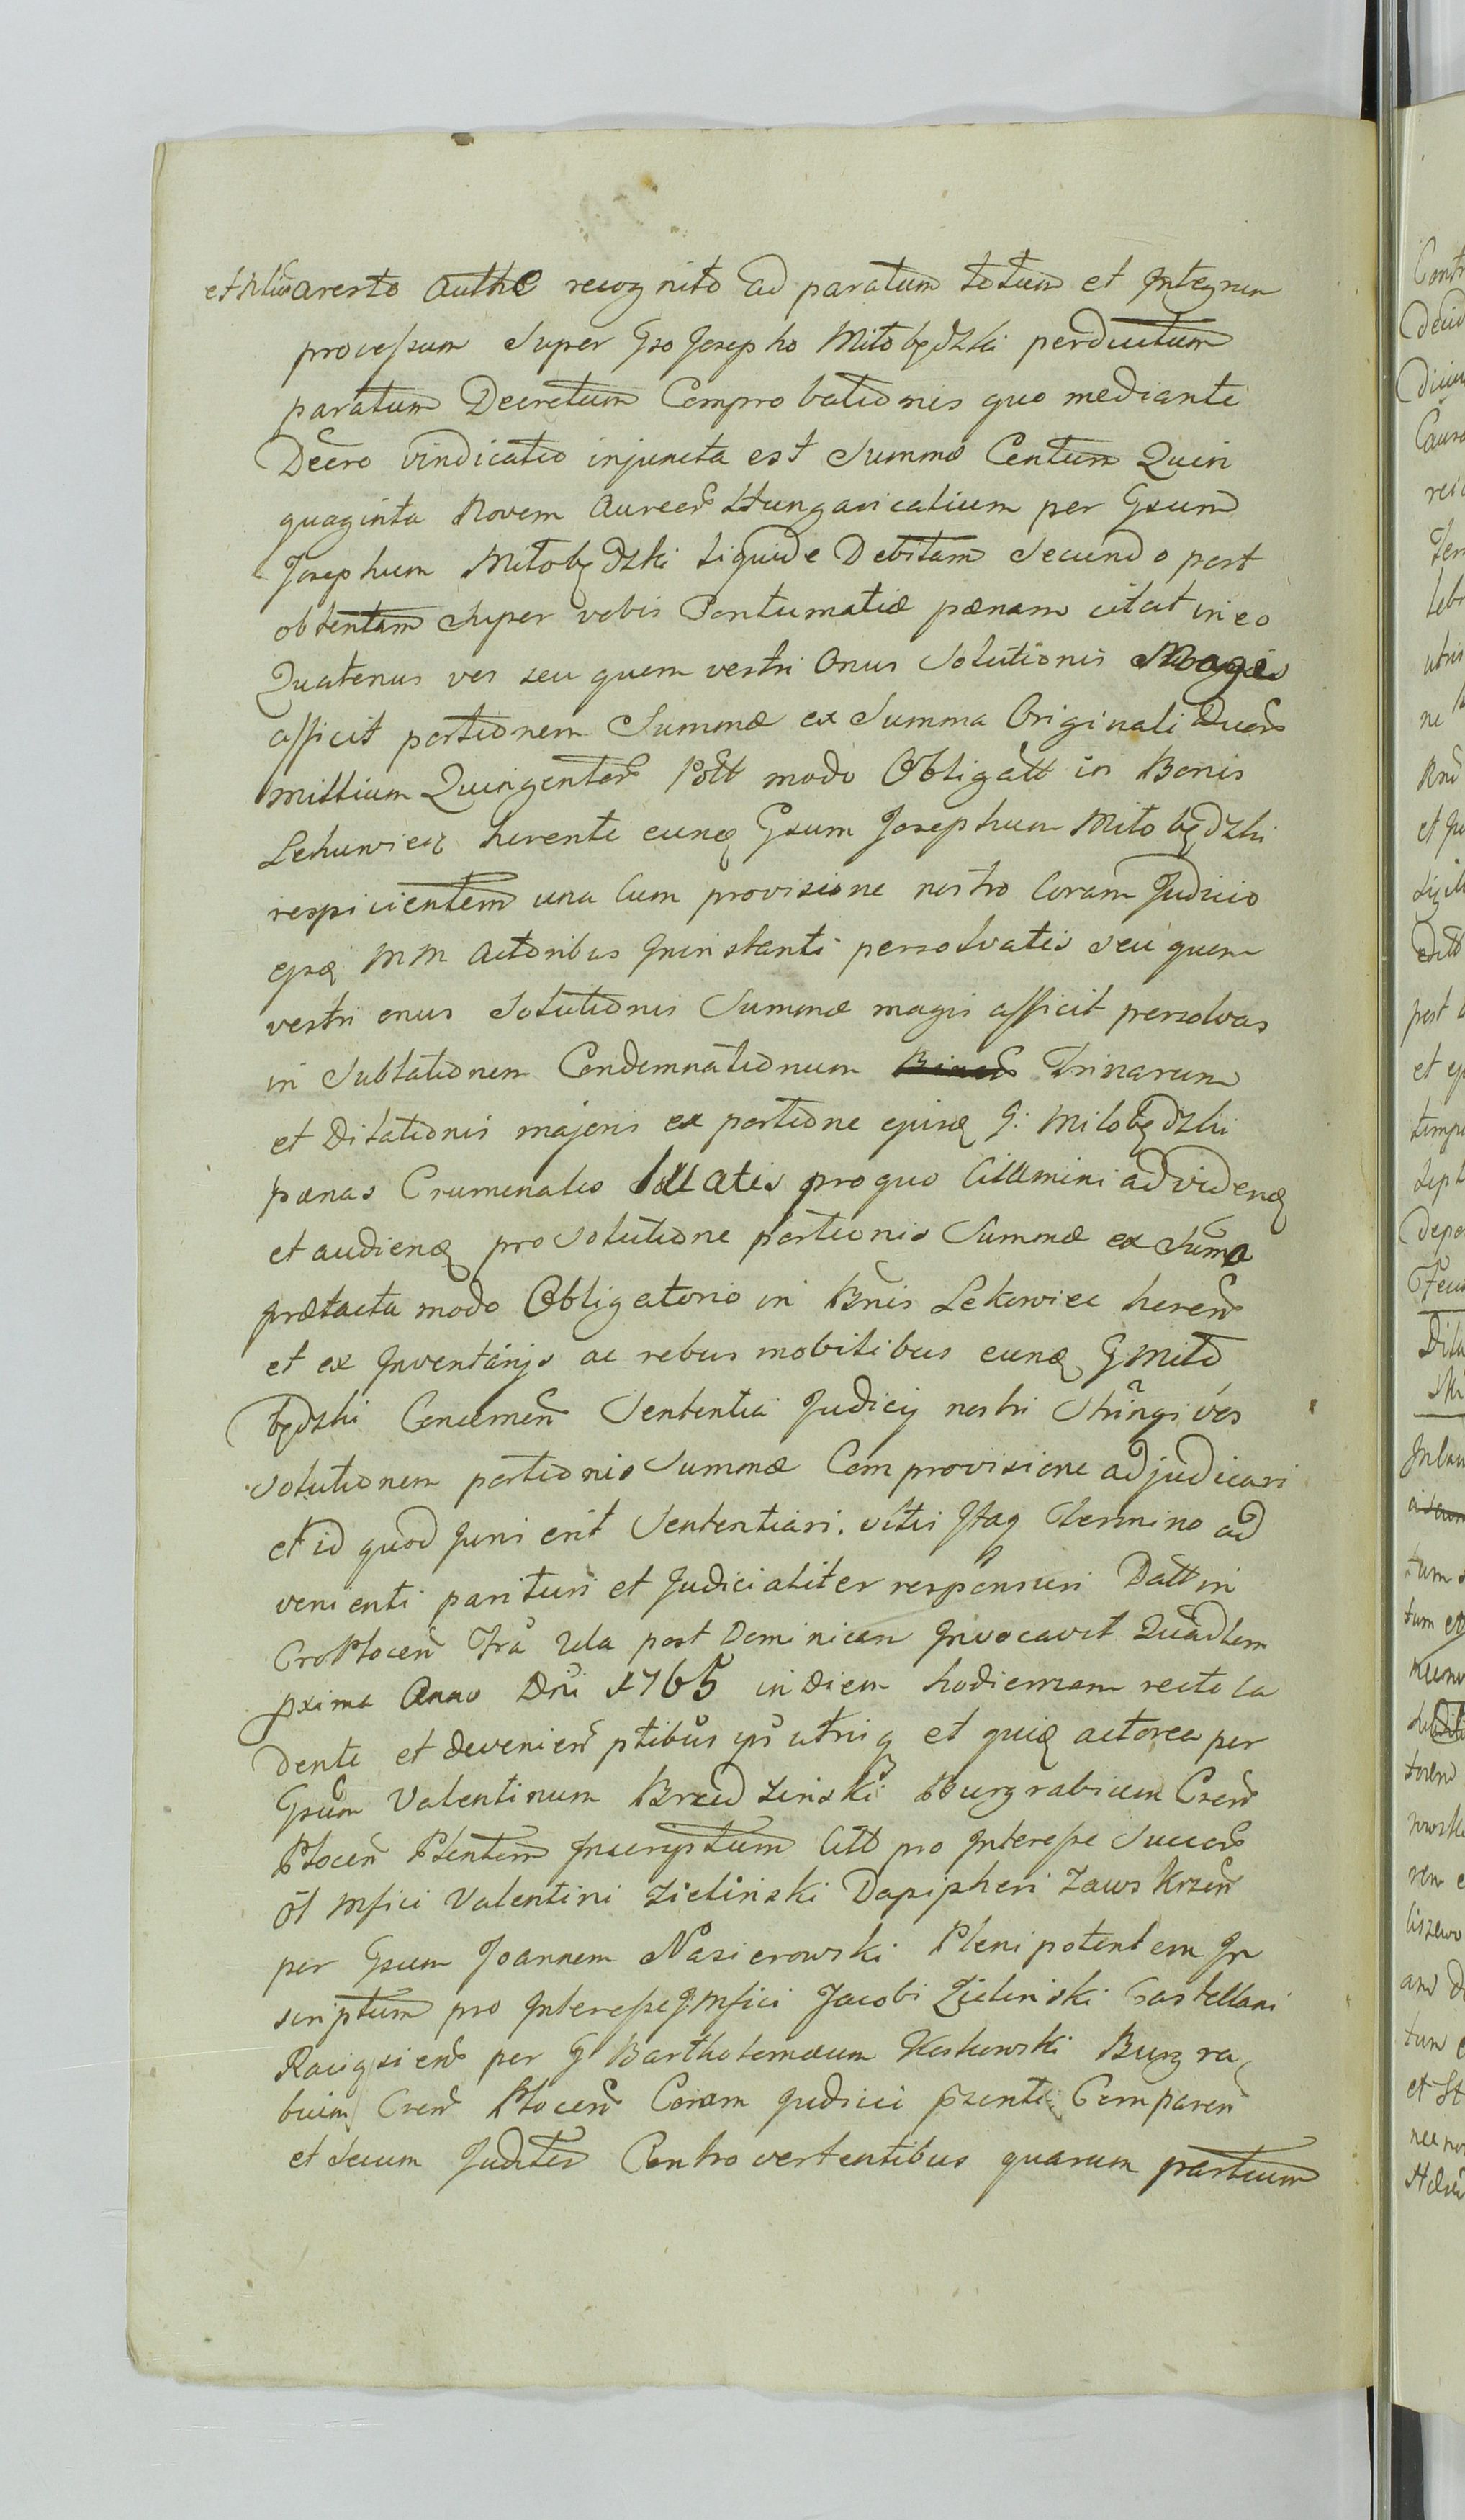 aresto Authe recognito ad paratum totum et Integrum
processum Super Gso Josepho Miłobędzki perductum
paratum Decretum Comprobationis quo mediante
Decro vindicatio injuncta est Summæ Centum Quin
quaginta Novem Aureor Hungaricalium per Gsum
Josephum Miłobędzki Liquide Debitam Secundo post
obtentam Super vobis Contumatiæ pænam citat in eo
Quatenus vos seu quem vestri Onus Solutionis Magis
afficit portionem Summæ ex Summa Originali Duor
millium Quingentor Poll modo Obligatt in Bonis
herente eunq Gsum Josephum Miłobędzki
respicientem una Cum provisione nostro Coram Judicio
MM Actoribus persolvatis seu quem
vestri onus Solutionis Summæ magis afficit persolvas
in Sublationem Condemnationum Trinarum
et Dilationis majoris ex portione G: Miłobędzki
pænas Cruminales pro quo Citamini ad videnq
et audienq pro Solutione portionis Summæ ex Suma
prætacta modo Obligatorio in Bnis Lekowiec heren
et ex Inventarijs ac rebus mobilibus eunq G Miło
będzki Sententia Judicij nostri Stringi vos
Solutionem portionis Summæ Cum provisione adjudicari
et id quod Juris erit Sententiari. vitis Itaq Termino ad
venienti parituri et Judicialiter responsuri Datt in
Cro Plocen Fra post Dominicam Invocavit Quadlem
pxima Anno Dni 1765 in diem hodiernam recto ca
dente et devenien ptibus ijs utrisq et quiq actorea per
Gsum Valentinum Burgrabium Cren
Plocen Plentem Inscriptum Citt pro Interesse Succor
ol Mfici Valentini Zieliński Dapipheri Zawskrzen
per Gsum Joannem Nasierowski Plenipotentem In
scriptum pro Interesse G. Mfici Jacobi Zieliński Castellani
Raciąsien per G Bartholomæum Burgra
bium Cren Plocen Coram Judicii Comparen
et Secum Judlter Controvertentibus quarum partium